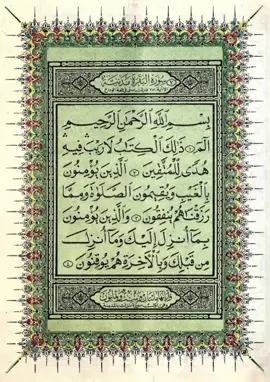 سورة البقرة مدنية
بسم الله الرحمن الرحيم
الم ١ ذلك الكتاب لا ريب فيه
هدى للمتقين ٢ الذين يؤمنون
بالغيب ويقيمون الصلوة ومما
رزقناهم ينفقون ٣ والذين يؤمنون
بما أنزل إليك وما أنزل
من قبلك وبالآخرة هم يوقنون ٤